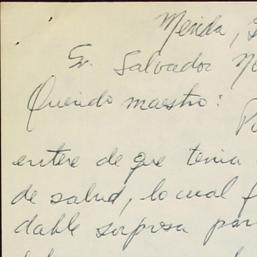 Merida,
Sr. Salvador
Querido maestro:
entere de que tenia
de salud, lo cual
dable sorpresa par